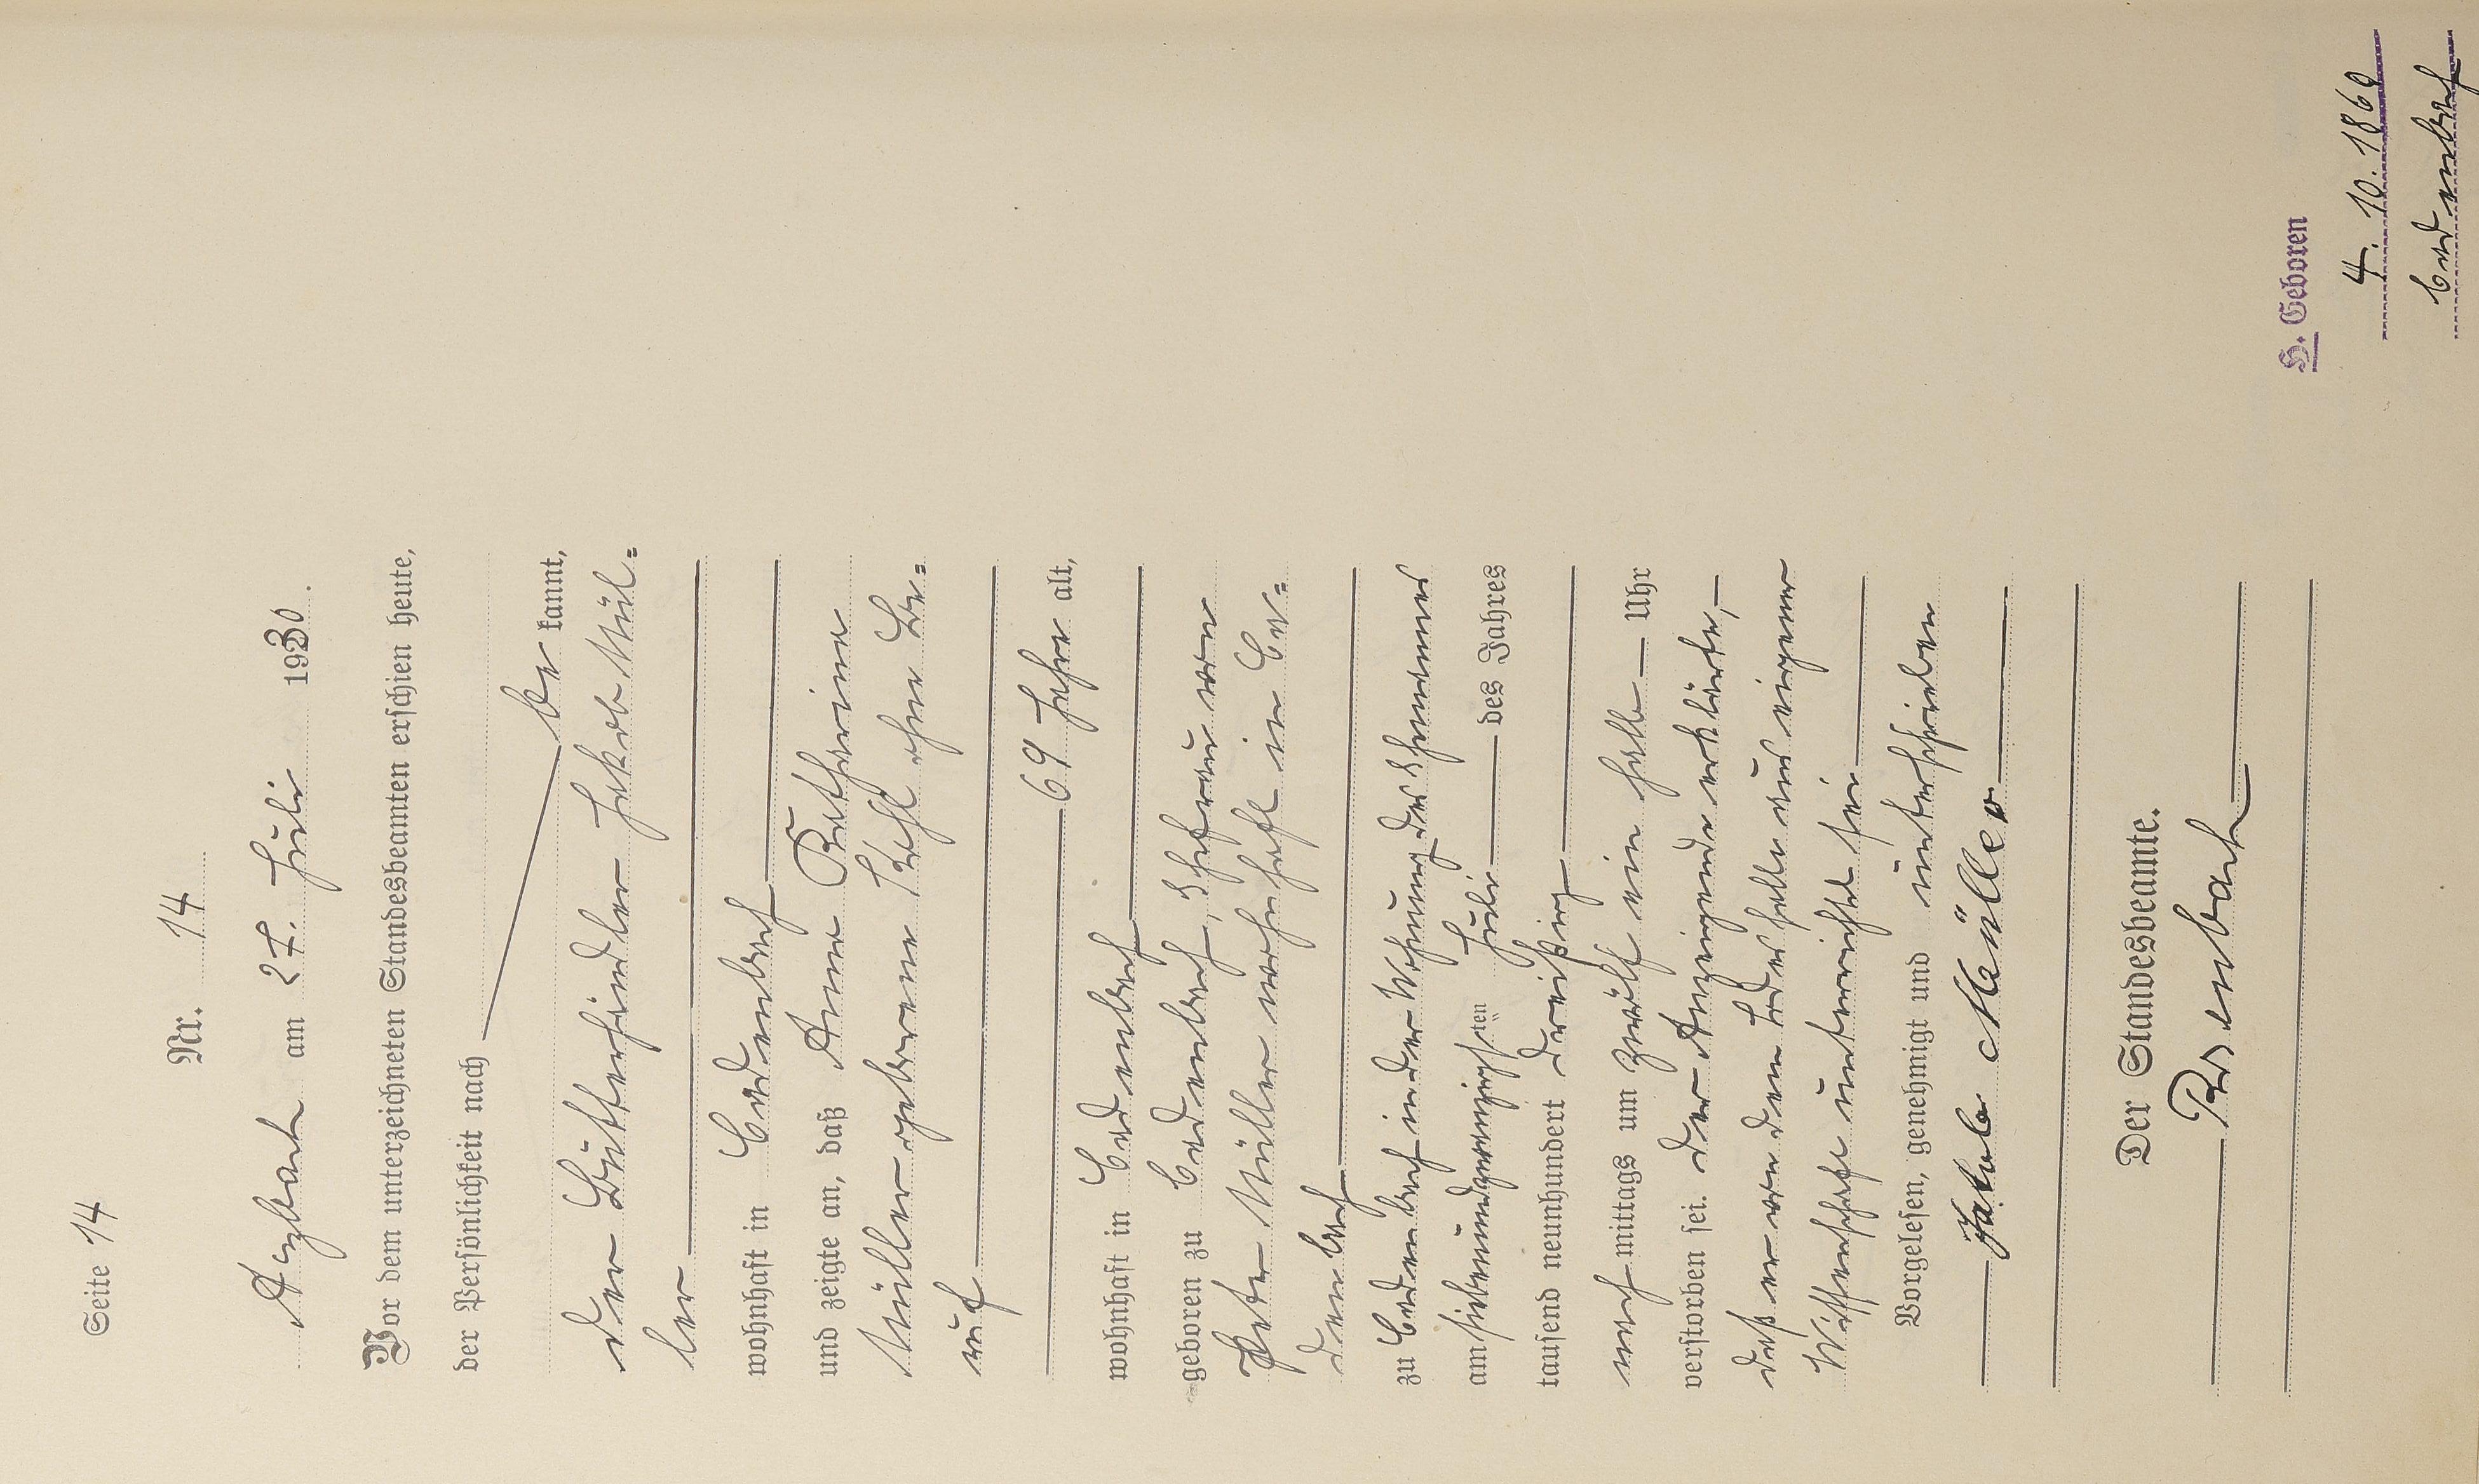 Seite 14
Nr. 14
Asbach am 27. Juli 1930.
Vor dem unterzeichneten Standesbeamten erschien heute,
der Persönlichkeit nach
be kannt,
der Butterhändler Jakob Mül-
ler
wohnhaft in Cadenbach
und zeigte an, daß Anna Katharina
Müller geborene Kehl ohne Be-
ruf
69 Jahre alt,
wohnhaft in Cadenbach
geboren zu Cadenbach, Ehefrau von
Peter Müller wohnhaft in Ca-
denbach
zu Cadenbach in der Wohnung des Ehemannes
am siebenundzwanzigsten Juli des Jahres
tausend neunhundert dreißig
nach mittags um zwölf ein halb Uhr
verstorben sei. Der Anzeigende erklärte,
daß er von dem Todesfalle aus eigener
Wissenschaft unterrichtet sei
Vorgelesen, genehmigt und unterschrieben
Jakob Müller
Der Standesbeamte.
H. Geboren
4. 10. 1860
Cadenbach